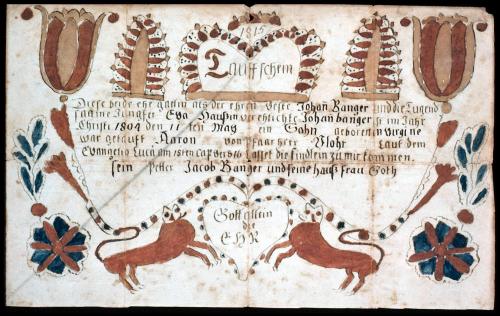 1815
Tauffschein
Diese beide ehe gatten als der ehren Veste Johan Banger und die Tugend
same Jungfer Eva verehlichte Johan banger ist im Jahr
Christi 1804 den 11 ten May ein Sohn geboren in Virgine
war getaufft Aaron von Pfaar herr Flohr Laut dem
Evangelio Luca am 18ten Cap vers 16 Lasset die Kindlein zu mir kommen.
sein Petter Jacob Banger und seine hauß frau Goth
Gott allein
die
EHR